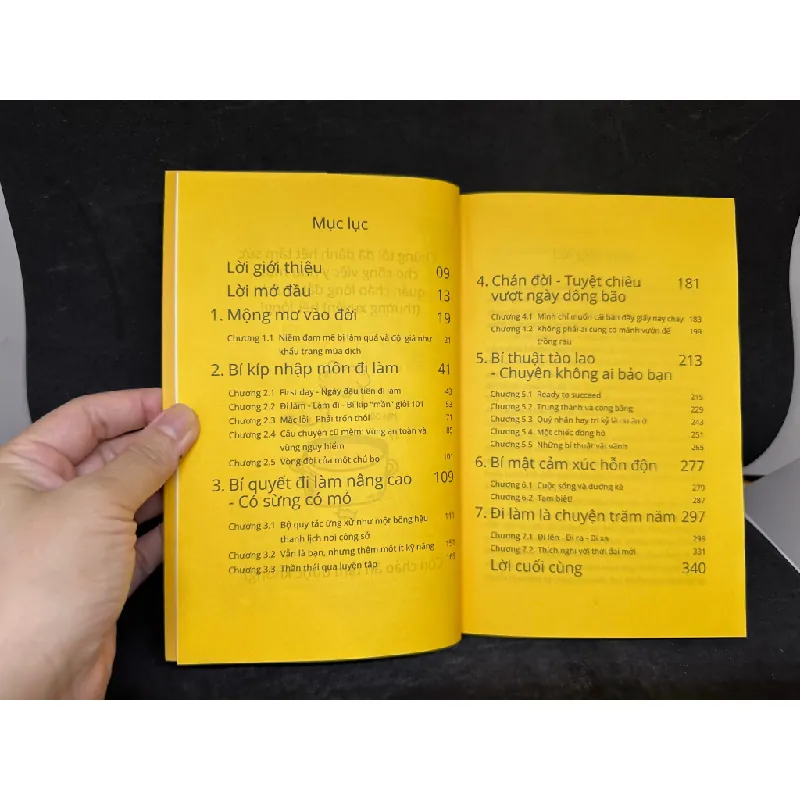 Mục lục
Lời giới thiệu 09
Lời mở đầu 13
1. Mộng mơ vào đời 19
Chương 1.1 Niềm đam mê bị làm quá và độ giả như
khẩu trang mùa dịch 21
2. Bí kíp nhập môn đi làm 41
Chương 2.1 First day - Ngày đầu tiên đi làm 43
Chương 2.2 Đi làm - Làm đi - Bí kíp "mồn" giỏi 101 53
Chương 2.3 Mắc lỗi - Phải trốn thôi 71
Chương 2.4 Câu chuyện cũ mèm: Vùng an toàn và
vùng nguy hiểm 85
Chương 2.5 Vòng đời của một chú bọ 101
3. Bí quyết đi làm nâng cao 109
- Có sừng có mỏ
Chương 3.1 Bộ quy tắc ứng xử như một bông hậu
thanh lịch nơi công sở
Chương 3.2 Vẫn là bạn, nhưng thêm một ít kỹ năng
Chương 3.3 Thần thái qua luyện tập
4. Chán đời - Tuyệt chiêu 181
vượt ngày dông bão
Chương 4.1 Mình chỉ muốn cái bàn đầy giấy này cháy 183
Chương 4.2 Không phải ai cũng có mảnh vườn để 199
trồng rau
5. Bí thuật tào lao 213
- Chuyện không ai bảo bạn
Chương 5.1 Ready to succeed 215
Chương 5.2 Trung thành và công bằng 229
Chương 5.3 Quý nhân hay tri kỷ là ở
Chương 5.4 Một chiếc đồng hồ 251
Chương 5.5 Những bí thuật vải vãnh 265
6. Bí mật cảm xúc hỗn độn 277
Chương 6.1 Cuộc sống và đường kẻ 279
Chương 6.2 Tạm biệt! 287
7. Đi làm là chuyện trăm năm 297
Chương 7.1 Đi lên - Đi ra - Đi xa 299
Chương 7.2 Thích nghi với thời đại mới 331
Lời cuối cùng 340